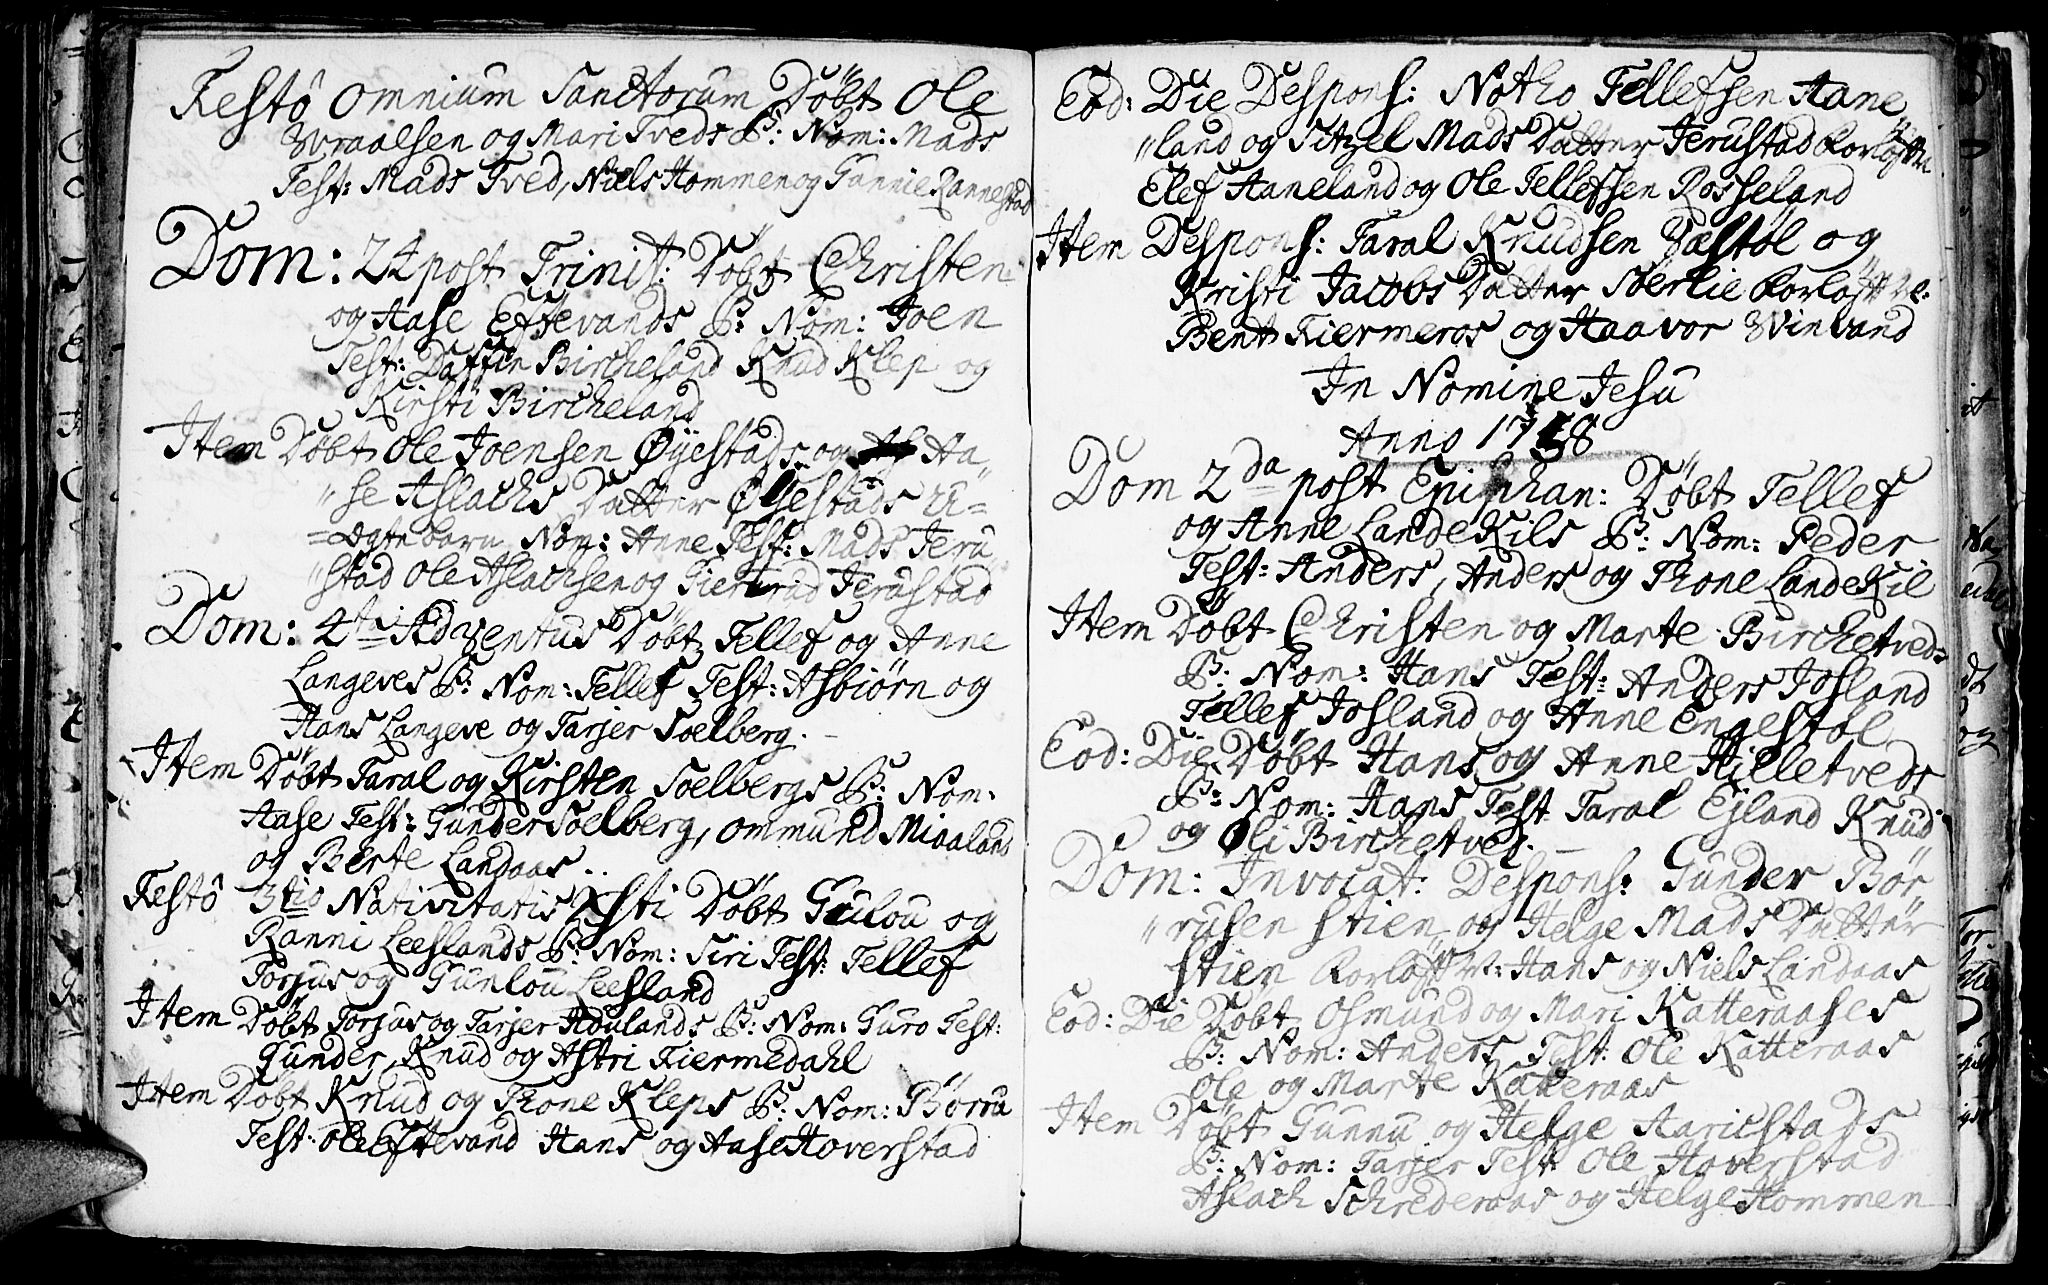 Festô Omnium Sanctorum Döbt Ole
Wraalsen og Mari Tveds B: Nom: Mads
Test: Mads Tved, Niels Hommen og Gunnie Rannestad
Dom: 24 post Trinit: Döbt Christen
og Aase Eftevands B: Nom: Joen
Test: Daffin Bircheland Knud Klep og
Kirsti Bircheland
Item Döbt Ole Joensen Øyestads og Aa„
„se Aslachs Datter Øyestads U=
=ægte barn Nom: Anne Test: Mads Jeru
„stad Ole Aslachsen og Giertrud Jerustad
Dom: 4ti Adventus Döbt Tellef og Anne
Langeves B: Nom: Tellef Test: Asbiørn og
Hans Langeve og Tarjer Soelberg.
Item Döbt Taral og Kirsten Soelbergs B: Nom.
Aase Test: Gunder Soelberg, Ommund Miaaland
og Berte Landaas..
Festô 3tio Nativitatis Xsti Döbt Gulou og
Ranni Leeslands B: Nom: Siri Test: Tellef
Torjus og Gunlou Leesland
Item Döbt Torjus og Tarjer Houlands B: Nom: Guro Test:
Gunder, Knud og Astri Fiermedahl
Item Döbt Knud og Thone Kleps B: Nom: Börru
Test: Ole Eftevand Hans og Aase Hoverstad
Eod: Die Despons: Notho Tellefsen Aane
„land og Sitzel Mads Datter Jerustad Forlöfte
Elef Aaneland og Ole Tellefsen Rosseland
Item Despons: Taral Knudsen Bæstöl og
Kristi Jacobs Datter Soerlie Forlöft. V:
Bent Fiermeros og Haavor Winvand
In Nomine Jesu
Anno 1738
Dom 2da post Epiphan: Döbt Tellef
og Anne Landekils B: Nom: Peder
Test: Anders, Anders og Thone Landekil
Item Döbt Christen og Marte Birchetveds
B: Nom: Hans Test: Anders Josland
Tellef Josland og Anne Engestöl
Eod: Die Döbt Hans og Anne Hilletveds
B: Nom: Hans Test: Taral Ejland Knud
og Oli Birchetved.
Dom: Invocat: Despons: Gunder Bör
„rusen Stien og Helge Mads Datter
Stien Forlöft V: Hans og Niels Landaas
Eod: Die Döbt Osmund og Mari Katteraases
B: Nom: Anders Test: Ole Katteraas
Ole og Marte Katteraas
Item Döbt Gunnu og Helge Aaricstads
B: Nom: Tarjer Test: Ole Hoverstad
Aslach Schrederaas og Helge Hommen